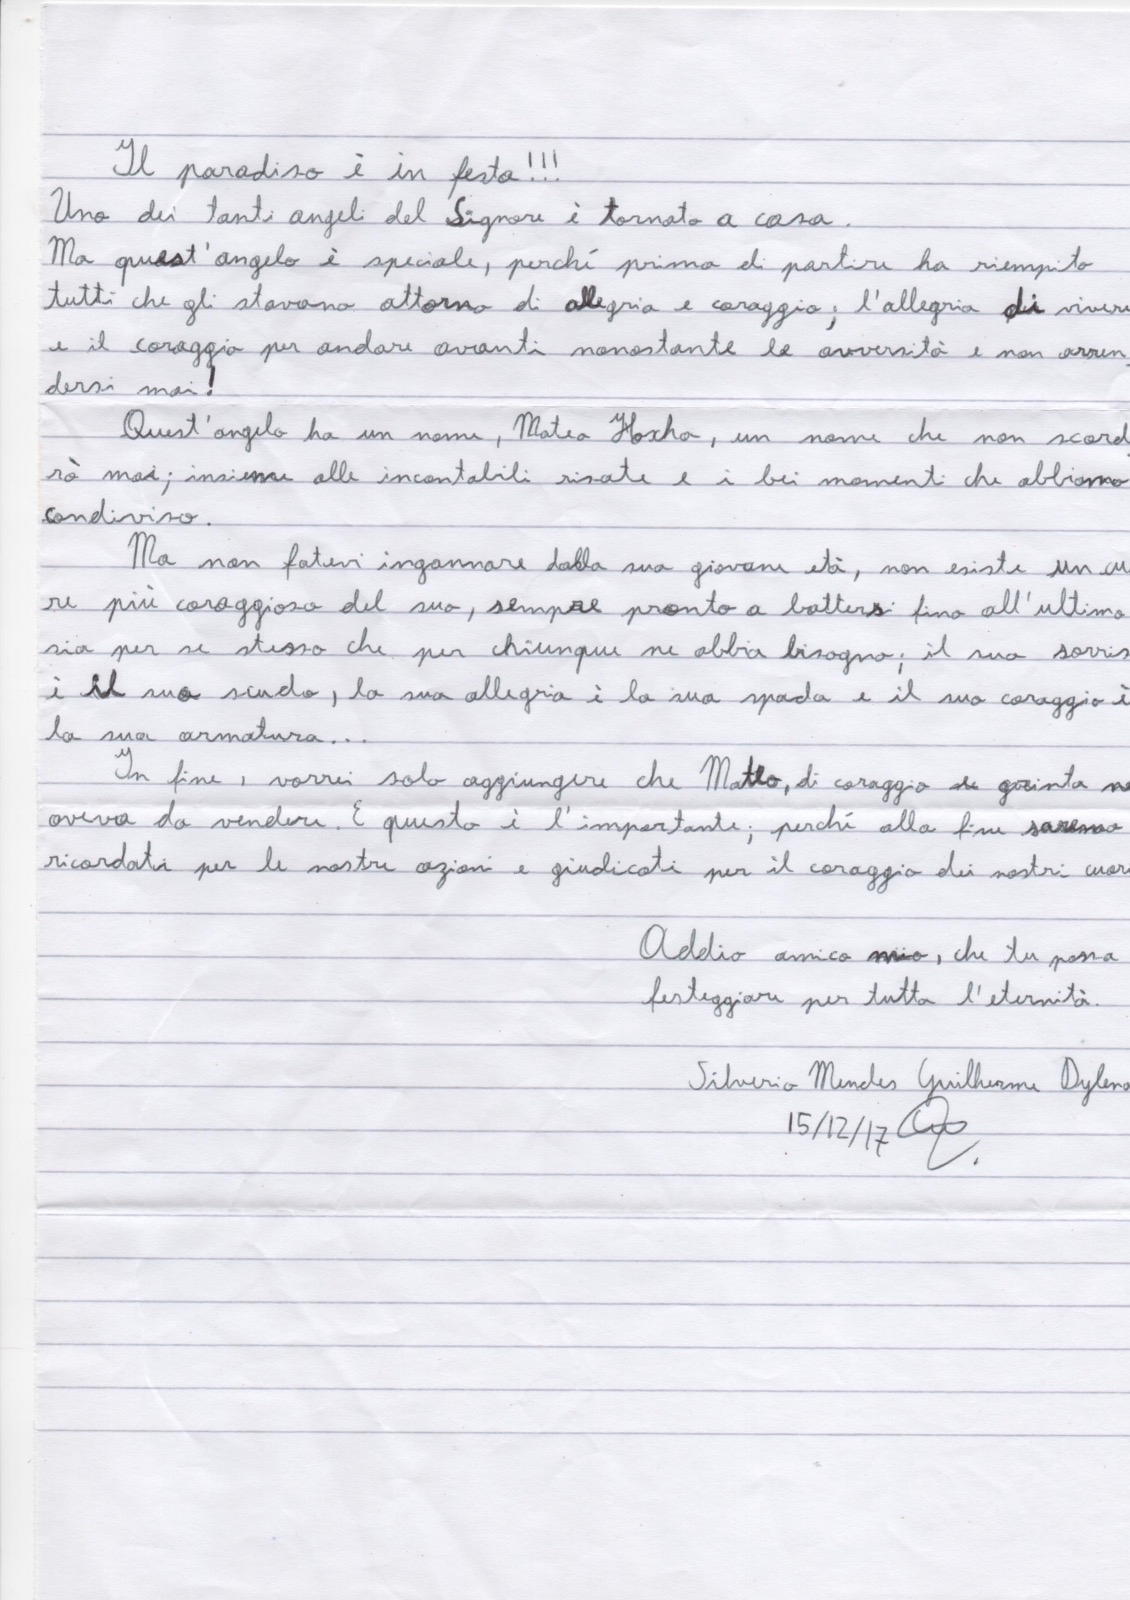 Il paradiso è in festa!!!
Uno dei tanti angeli del Signore è tornato a casa.
Ma quest'angelo è speciale, perché prima di partire ha riempito
tutti che gli stavano attorno di allegria e coraggio; l'allegria di vivere
e il coraggio per andare avanti nonostante le avversità e non arren
dersi mai!
Quest'angelo ha un nome, Matea Hoxha, un nome che non scord
rò mai; insieme alle incontabili risate e i bei momenti che abbiamo
condiviso.
Ma non fatevi ingannare dalla sua giovane età, non esiste un cu
re più coraggioso del suo, sempre pronto a battersi fino all'ultimo
sia per se stesso che per chiunque ne abbia bisogno; il suo sorris
è il suo scudo, la sua allegria è la sua spada e il suo coraggio è
la sua armatura...
In fine, vorrei solo aggiungere che Matteo, di coraggio e grinta ne
aveva da vendere. E questo è l'importante; perché alla fine saremo
ricordati per le nostre azioni e giudicati per il coraggio dei nostri cuori
Addio amico mio, che tu possa
festeggiare per tutta l'eternità.
Silverio Mendes Guilherme Dyleno
15/12/17